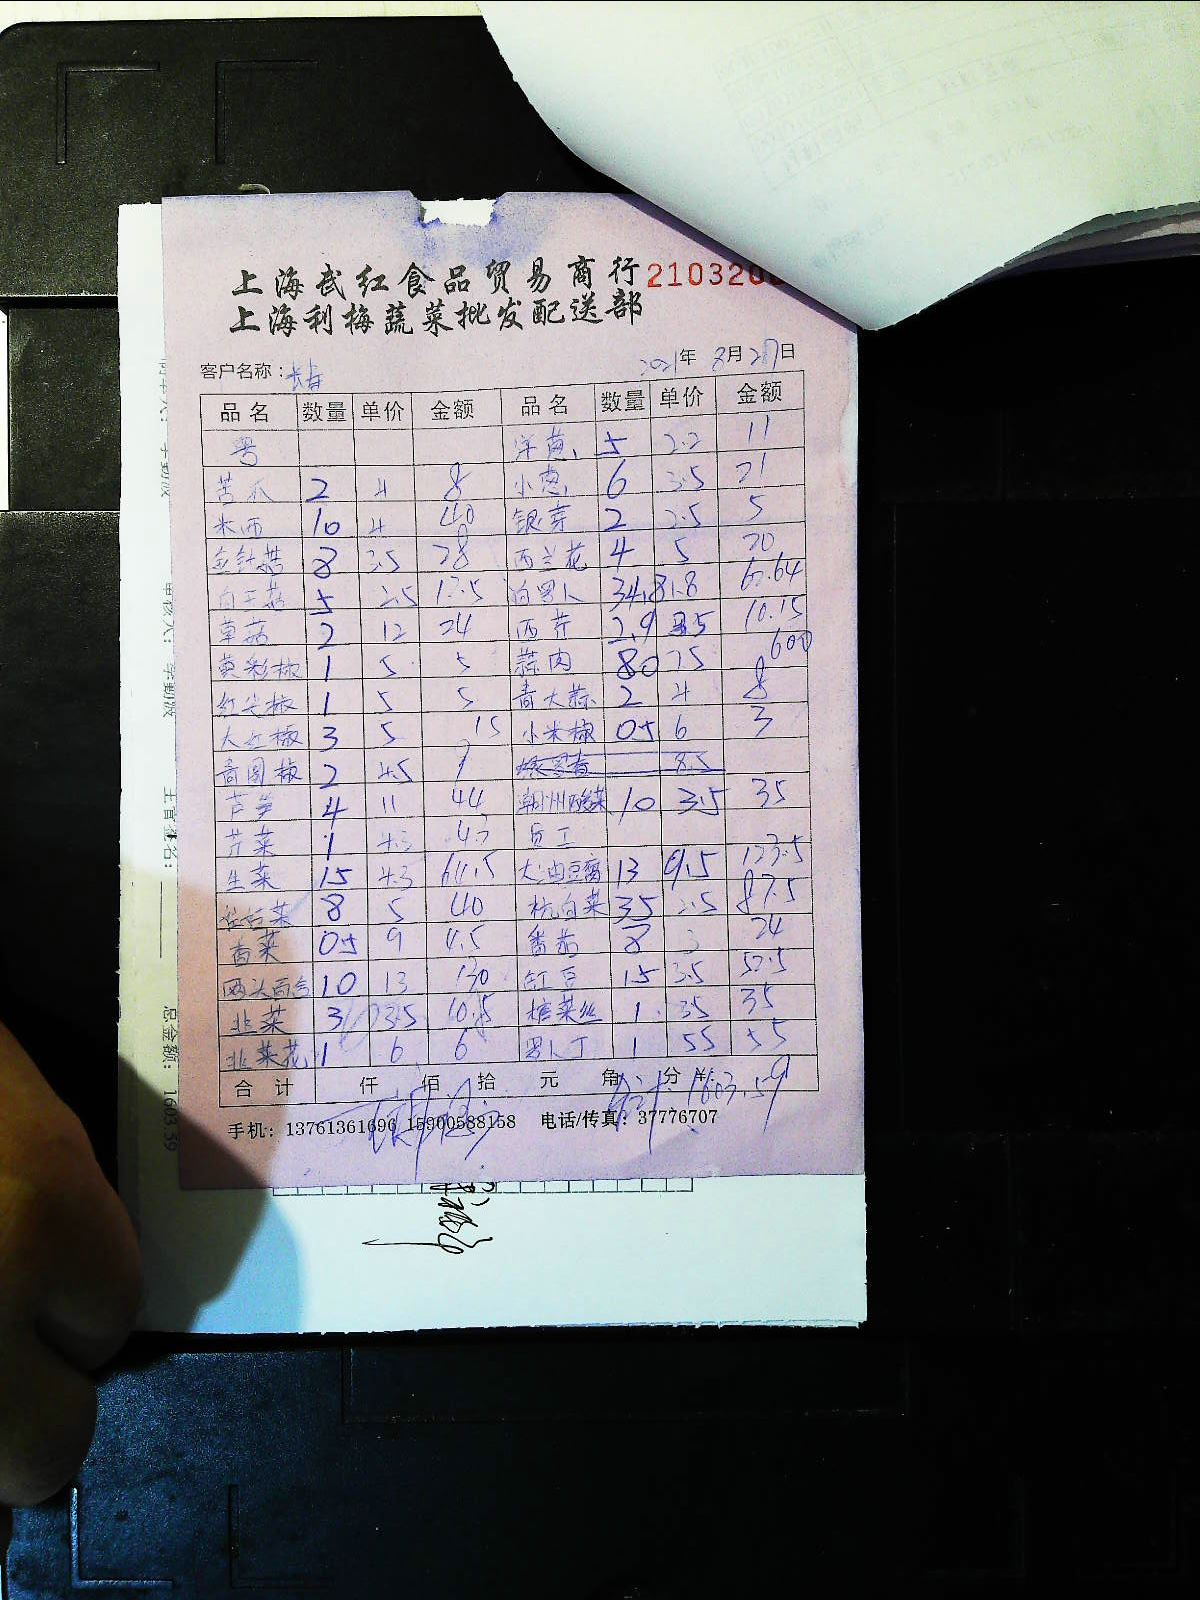 上海武红食品贸易商行 210320
上海利梅蔬菜批发配送部
客户名称： 2021年 8月27日
品名 数量 单价 金额 品名 数量 单价 金额
粤 洋葱 5 2.2 11
苦瓜 2 4 8 小葱 6 3.5 21
米西 10 4 40 银芽 2 2.5 5
金针菇 8 3.5 28 西兰花 4 5 20
白玉菇 5 2.5 12.5 34.8 1.8 62.64
草菇 2 12 24 西芹 2.9 3.5 10.15
黄彩椒 1 5 5 蒜肉 80 7.5 600
红尖椒 1 5 5 青大蒜 2 4 8
大红椒 3 5 15 小米椒 0.5 6 3
青圆椒 2 4.5 9 8.5
芦笋 4 11 44 潮州酸菜 10 3.5 35
芹菜 1 4.3 4.3 员工
生菜 15 4.3 64.5 大油豆腐 13 9.5 123.5
8 5 40 杭白菜 35 2.5 87.5
香菜 0.5 9 4.5 番茄 8 3 24
两头百合 10 13 130 缸豆 15 3.5 52.5
韭菜 3 3.5 10.5 榨菜丝 1 35 35
韭菜花 1 6 6 1 55 55
合计 仟 佰 拾 元 角 分 ¥
合计 1603.59
手机：13761361696 15900588158 电话/传真：37776707
总金额： 1603.59